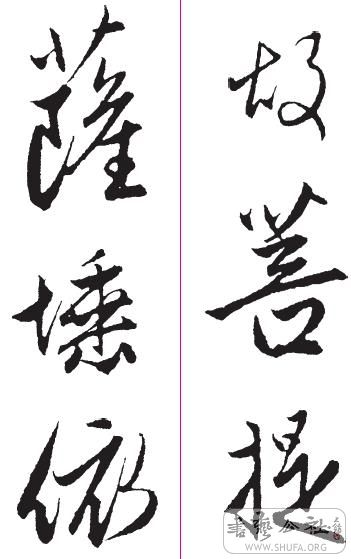 故菩提
薩埵依
書藝公社
WWW.SHUFA.ORG